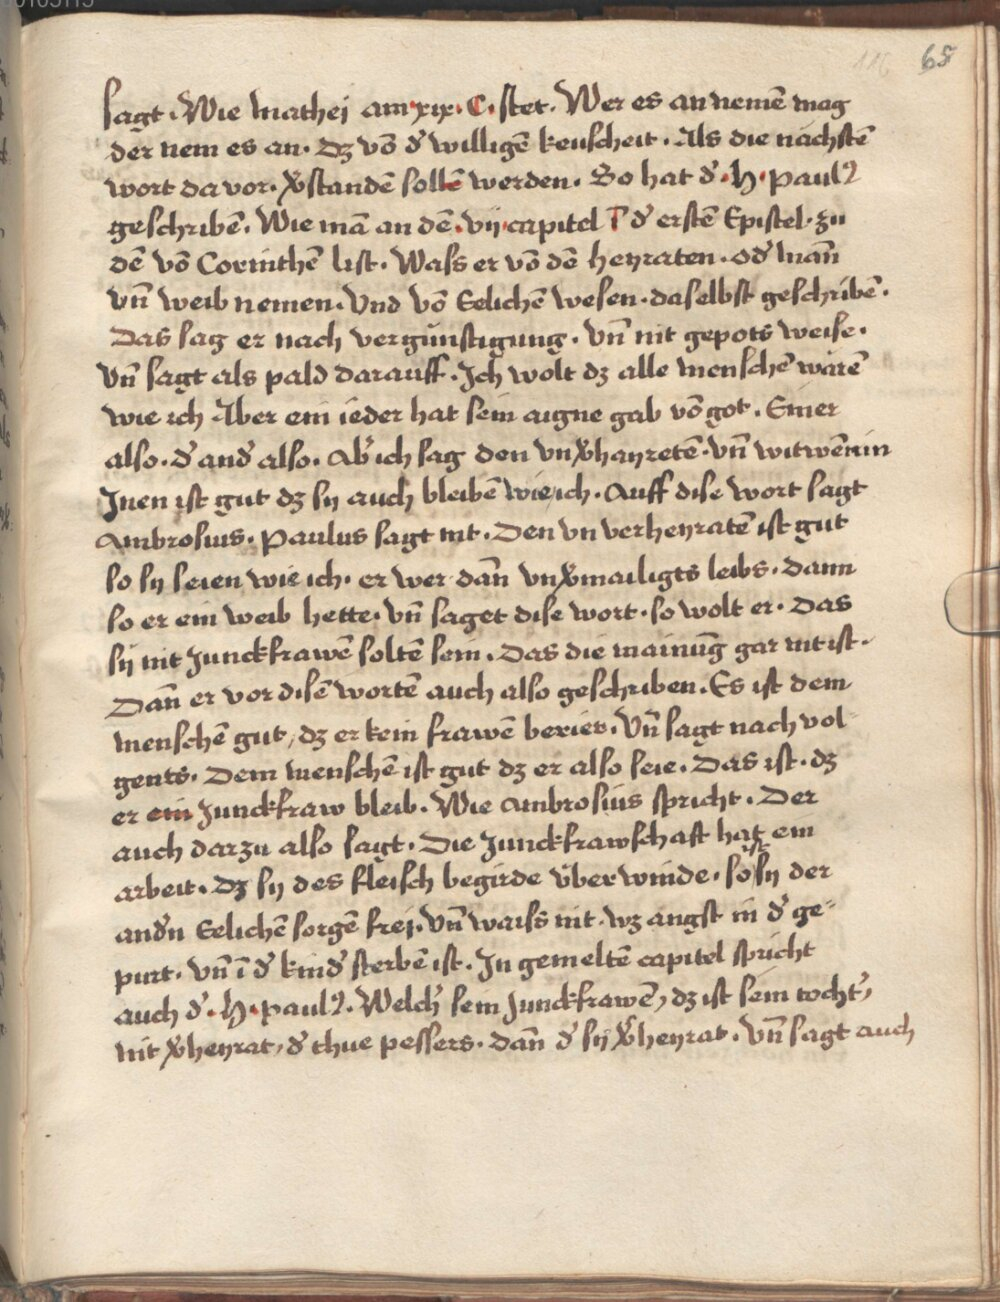 116 65
sagt. Wie Mathej am .xix. C. stet. Wer es annemē mag
der nem es an. Dz vō d̄ willigē keuscheit. Als die nächstē
wort da vor. v̄standē sollē werden. So hat d̄ .H. Paulꝰ
geschribē. Wie mā an dē .vij. capitel d̄ erstē Epistel zu
dē vō Corinthē list. Wass er vō dē heyraten. od̄ mañ
vñ weib nemen. Vnd vō Eelichē wesen. daselbst geschribē.
Das sag er nach vergünstigung. vñ nit gepots weise.
Vñ sagt als pald darauff. Ich wolt dz alle menschē wärē
wie ich Aber ein ieder hat sein aigne gab vō got. Einer
also. d̄ and̄ also. Ab̄ ich sag den vnv̄hayretē. vñ witwēnin
Inen ist gut dz sy auch bleibē wie ich. Auff dise wort sagt
Ambrosius. Paulus sagt nit. Den vnverheyratē ist gut
so sy seien wie ich. er wer dañ vnv̄mailigts leibs. Dann
so er ein weib hette. vñ saget dise wort. so wolt er. Das
sy nit Junckfrawē soltē sein. Das die mainūg gar nit ist.
Dañ er vor disē wortē auch also geschriben. Es ist dem
menschē gut, dz er kein frawē berier. Vñ sagt nach vol-
gents. Dem menschē ist gut dz er also seie. Das ist. dz
er ein Junckfraw bleib. Wie Ambrosius spricht. Der
auch darzu also sagt. Die Junckfrawschaft hat ein
arbeit. Dz sy des fleisch begirde überwinde. so sy der
and̄n Eelichē sorgē frej. Vñ waiss nit. wz angst in d̄ ge-
purt. vñ ī d̄ kind̄ sterbē ist. In gemeltē capitel spricht
auch d̄ .H. Paulꝰ. Welch̄ sein Junckfrawē, dz ist sein tocht̄,
nit v̄heyrat, d̄ thue pessers. dañ d̄ sy v̄heyrat. Vñ sagt auch